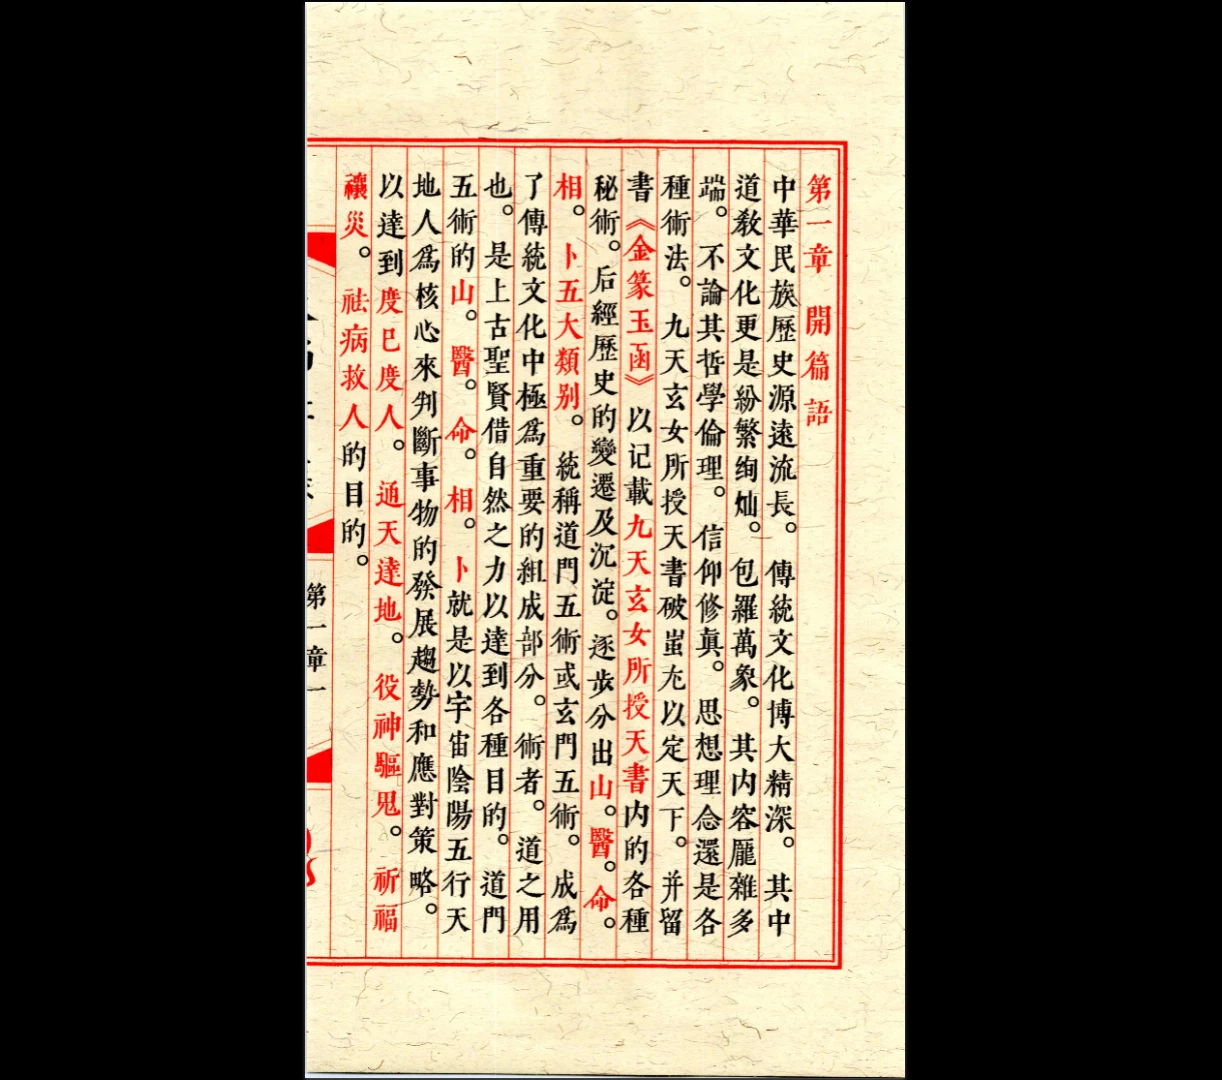 第一章　開篇語
中華民族歷史源遠流長。傳統文化博大精深。其中
道教文化更是紛繁絢灿。包羅萬象。其内容龐雜多
端。不論其哲學倫理。信仰修真。思想理念還是各
種術法。九天玄女所授天書破蚩尤以定天下。并留
書《金篆玉函》以记載九天玄女所授天書内的各種
秘術。后經歷史的變遷及沉淀。逐步分出山。醫。命。
相。卜五大類别。統稱道門五術或玄門五術。成爲
了傳統文化中極爲重要的組成部分。術者。道之用
也。是上古聖賢借自然之力以達到各種目的。道門
五術的山。醫。命。相。卜就是以宇宙陰陽五行天
地人爲核心來判斷事物的發展趨勢和應對策略。
以達到度已度人。通天達地。役神驅鬼。祈福
禳災。祛病救人的目的。
第一章一